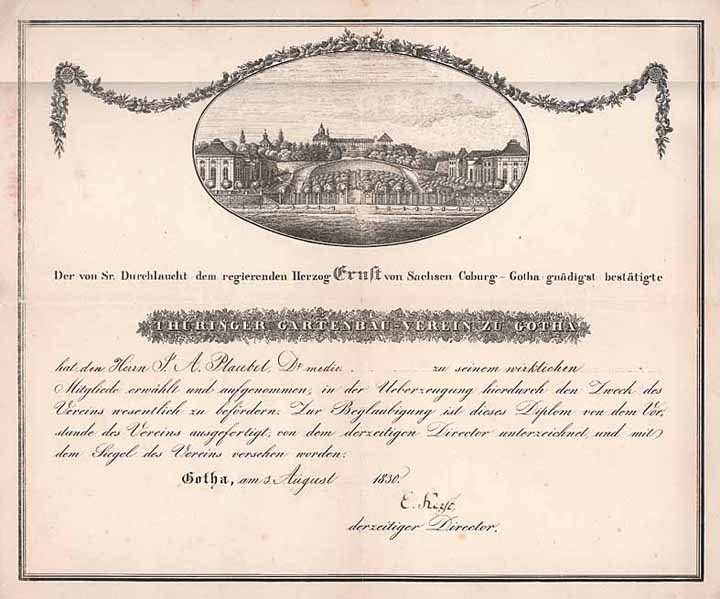 Der von Sr. Durchlaucht dem regierenden Herzog Ernst von Sachsen Coburg - Gotha gnädigst bestätigte
THÜRINGER GARTENBAU-VEREIN ZU GOTHA
hat den Herrn A. Plaubel, Dr medic. zu seinem wirklichen
Mitgliede erwählt und aufgenommen, in der Ueberzeugung hierdurch den Zweck des
Vereins wesentlich zu befördern. Zur Beglaubigung ist dieses Diplom von dem Vor-
stande des Vereins ausgefertigt, von dem derzeitigen Director unterzeichnet, und mit
dem Siegel des Vereins versehen worden.
Gotha, am 3 August 1830.
E.
derzeitiger Director.